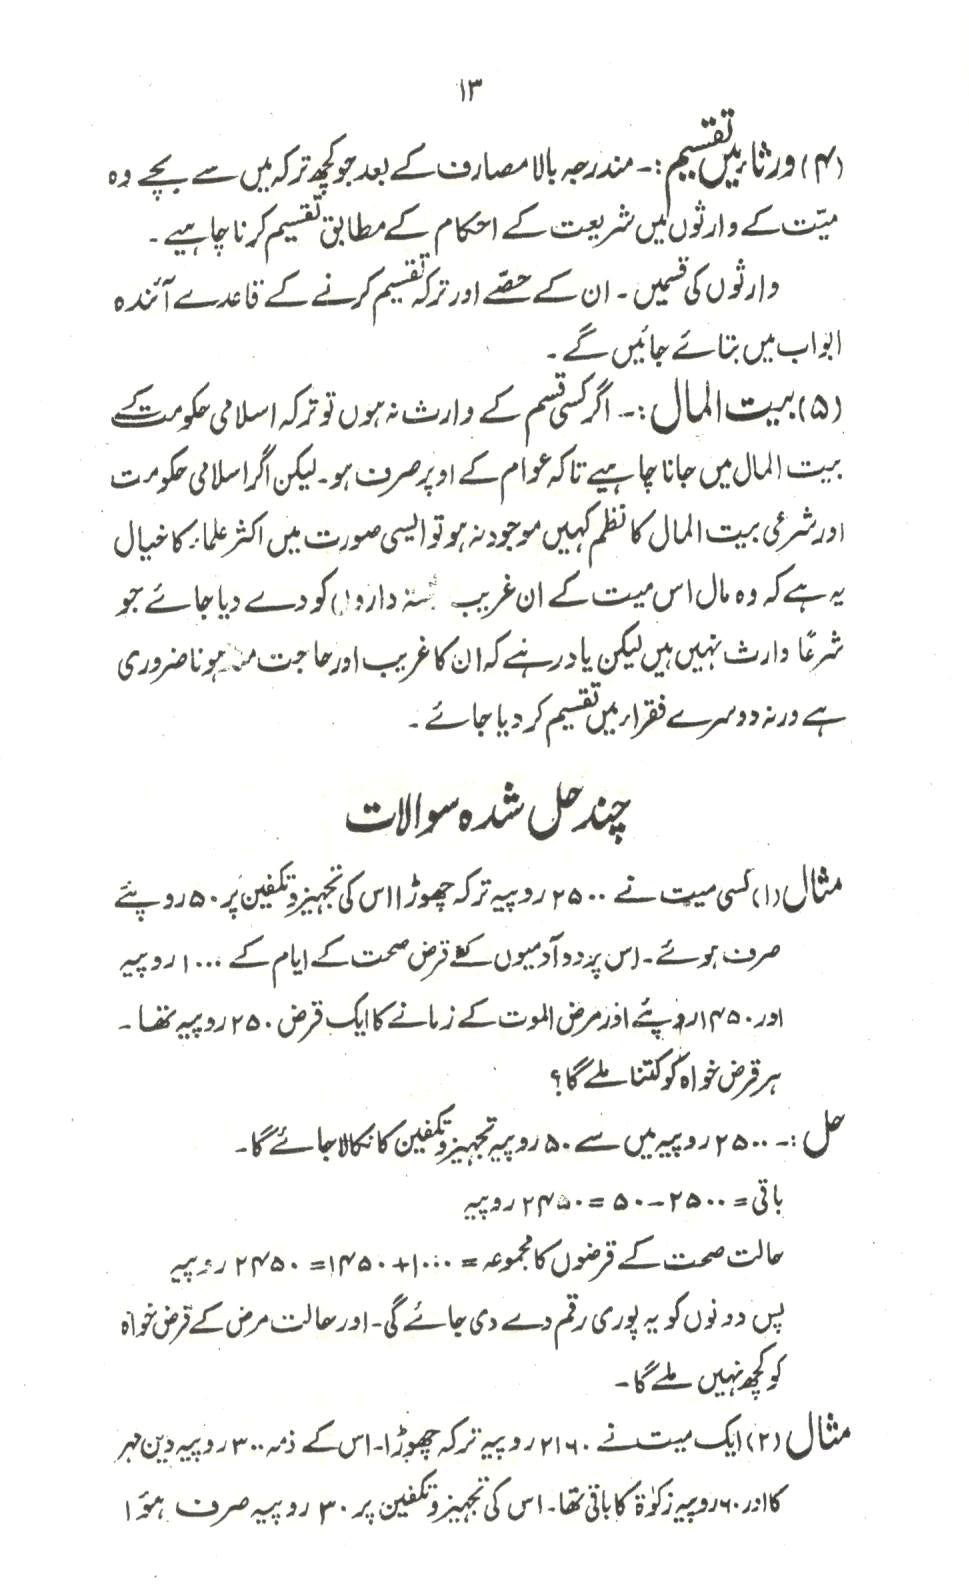 ۱۳
(۴) ورثاء میں تقسیم :۔ مندرجہ بالا مصارف کے بعد جو کچھ ترکہ میں سے بچے وہ
میّت کے وارثوں میں شریعت کے احکام کے مطابق تقسیم کرنا چاہیے ۔
وارثوں کی قسمیں ۔ ان کے حصّے اور ترکہ تقسیم کرنے کے قاعدے آئندہ
ابواب میں بتائے جائیں گے ۔
(۵) بیت المال :۔ اگر کسی قسم کے وارث نہ ہوں تو ترکہ اسلامی حکومت کے
بیت المال میں جانا چاہیے تاکہ عوام کے اوپر صرف ہو ۔ لیکن اگر اسلامی حکومت
اور شرعی بیت المال کا نظم کہیں موجود نہ ہو تو ایسی صورت میں اکثر علماء کا خیال
یہ ہے کہ وہ مال اس میت کے ان غریب داروں کو دے دیا جائے جو
شرعًا وارث نہیں ہیں لیکن یاد رہے کہ ان کا غریب اور حاجت مند ہونا ضروری
ہے ورنہ دوسرے فقراء میں تقسیم کر دیا جائے ۔
چند حل شدہ سوالات
مثال (۱) کسی میت نے ۲۵۰۰ روپیہ ترکہ چھوڑا اس کی تجہیز و تکفین پر ۵۰ روپئے
صرف ہوئے ۔ اس پر دو آدمیوں کے قرض صحت کے ایام کے ۱۰۰۰ روپیہ
اور ۱۴۵۰ روپئے اور مرض الموت کے زمانے کا ایک قرض ۲۵۰ روپیہ تھا ۔
ہر قرض خواہ کو کتنا ملے گا؟
حل :۔ ۲۵۰۰ روپیہ میں سے ۵۰ روپیہ تجہیز و تکفین کا نکالا جائے گا ۔
باقی = ۲۵۰۰ − ۵۰ = ۲۴۵۰ روپیہ
حالت صحت کے قرضوں کا مجموعہ = ۱۰۰۰ + ۱۴۵۰ = ۲۴۵۰ روپیہ
پس دونوں کو یہ پوری رقم دے دی جائے گی ۔ اور حالت مرض کے قرض خواہ
کو کچھ نہیں ملے گا ۔
مثال (۲) ایک میت نے ۲۱۶۰ روپیہ ترکہ چھوڑا ۔ اس کے ذمہ ۳۰۰ روپیہ دین مہر
کا اور ۶۰ روپیہ زکوٰۃ کا باقی تھا ۔ اس کی تجہیز و تکفین پر ۳۰ روپیہ صرف ہؤا